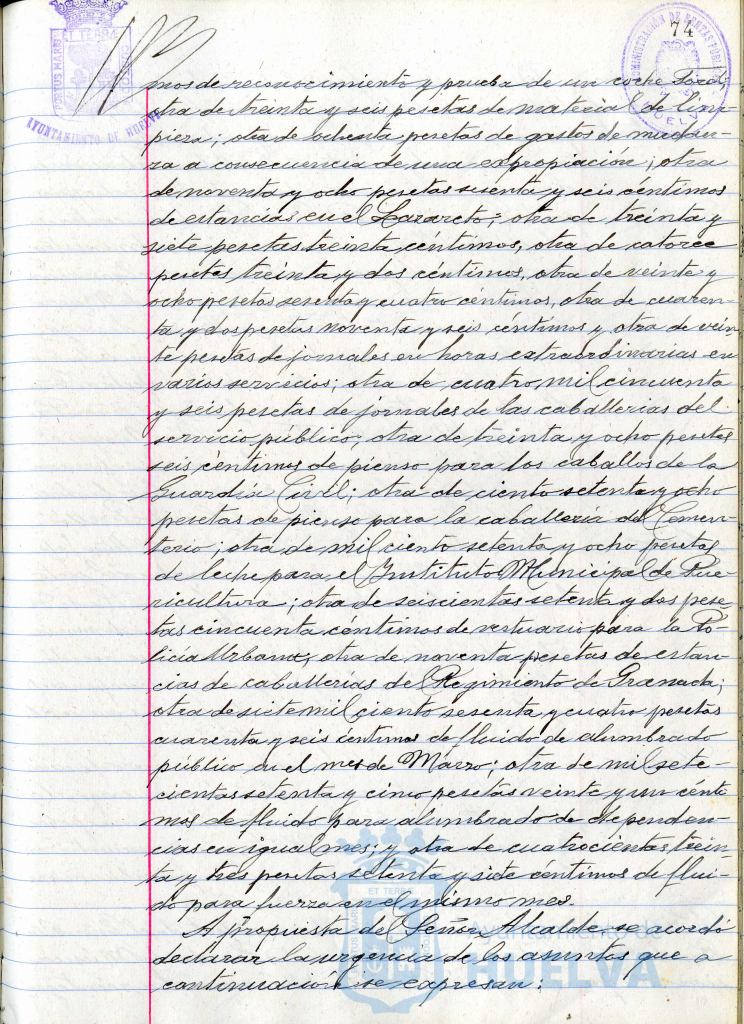 74
ET TERRÆ
PORTUS MARIS
AYUNTAMIENTO DE HUELVA
ADMINISTRACIÓN DE RENTAS PÚBLICAS
HUELVA
mos de reconocimiento y prueba de un coche Ford;
otra de treinta y seis pesetas de material de lim-
pieza; otra de ochenta pesetas de gastos de mudan-
za a consecuencia de una expropiación; otra
de noventa y ocho pesetas sesenta y seis céntimos
de estancias en el Lazareto; otra de treinta y
siete pesetas treinta céntimos, otra de catorce
pesetas treinta y dos céntimos, otra de veinte y
ocho pesetas sesenta y cuatro céntimos, otra de cuaren-
ta y dos pesetas noventa y seis céntimos y otra de vein-
te pesetas de jornales en horas extraordinarias en
varios servicios; otra de cuatro mil cincuenta
y seis pesetas de jornales de las caballerias del
servicio público; otra de treinta y ocho pesetas
seis céntimos de pienso para los caballos de la
Guardia Civil; otra de ciento setenta y ocho
pesetas de pienso para la caballería del Cemen-
terio; otra de mil ciento setenta y ocho pesetas
de leche para el Instituto Municipal de Pue-
ricultura; otra de seiscientas setenta y dos pese-
tas cincuenta céntimos de vestuario para la Po-
licía Urbana; otra de noventa pesetas de estan-
cias de caballerías de Regimiento de Granada;
otra de siete mil ciento sesenta y cuatro pesetas
cuarenta y seis centimos de fluido de alumbrado
público en el mes de Marzo; otra de mil sete-
cientas setenta y cinco pesetas veinte y un cénti-
mos de fluido para alumbrado de dependen-
cias en igual mes; y otra de cuatrocientas trein-
ta y tres pesetas setenta y siete céntimos de flui-
do para fuerza en el mismo mes.
A propuesta del Señor Alcalde, se acordó
declarar la urgencia de los asuntos que a
continuación se expresan:
ET TERRÆ
PORTUS MARIS
Ayuntamiento de
HUELVA